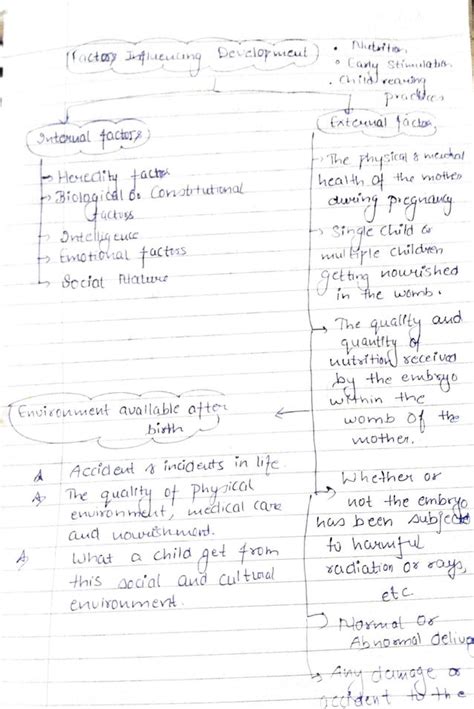 Factors Influencing Development
• Nutrition
• Early Stimulation
• Child rearing
practices
Internal factors
→ Heredity factor
→ Biological or Constitutional
factors
→ Intelligence
→ Emotional factors
→ Social Nature
External factor
→ The physical & mental
health of the mother
during pregnancy
→ Single child or
multiple children
getting nourished
in the womb.
→ The quality and
quantity of
nutrition received
by the embryo
within the
womb of the
mother.
→ Whether or
not the embryo
has been subject
to harmful
radiation or rays,
etc.
→ Normal or
Abnormal
→ Any damage or
accident to the
Environment available after
birth
Accident & incidents in life.
The quality of physical
environment, medical care
and nourishment.
What a child get from
this social and cultural
environment.